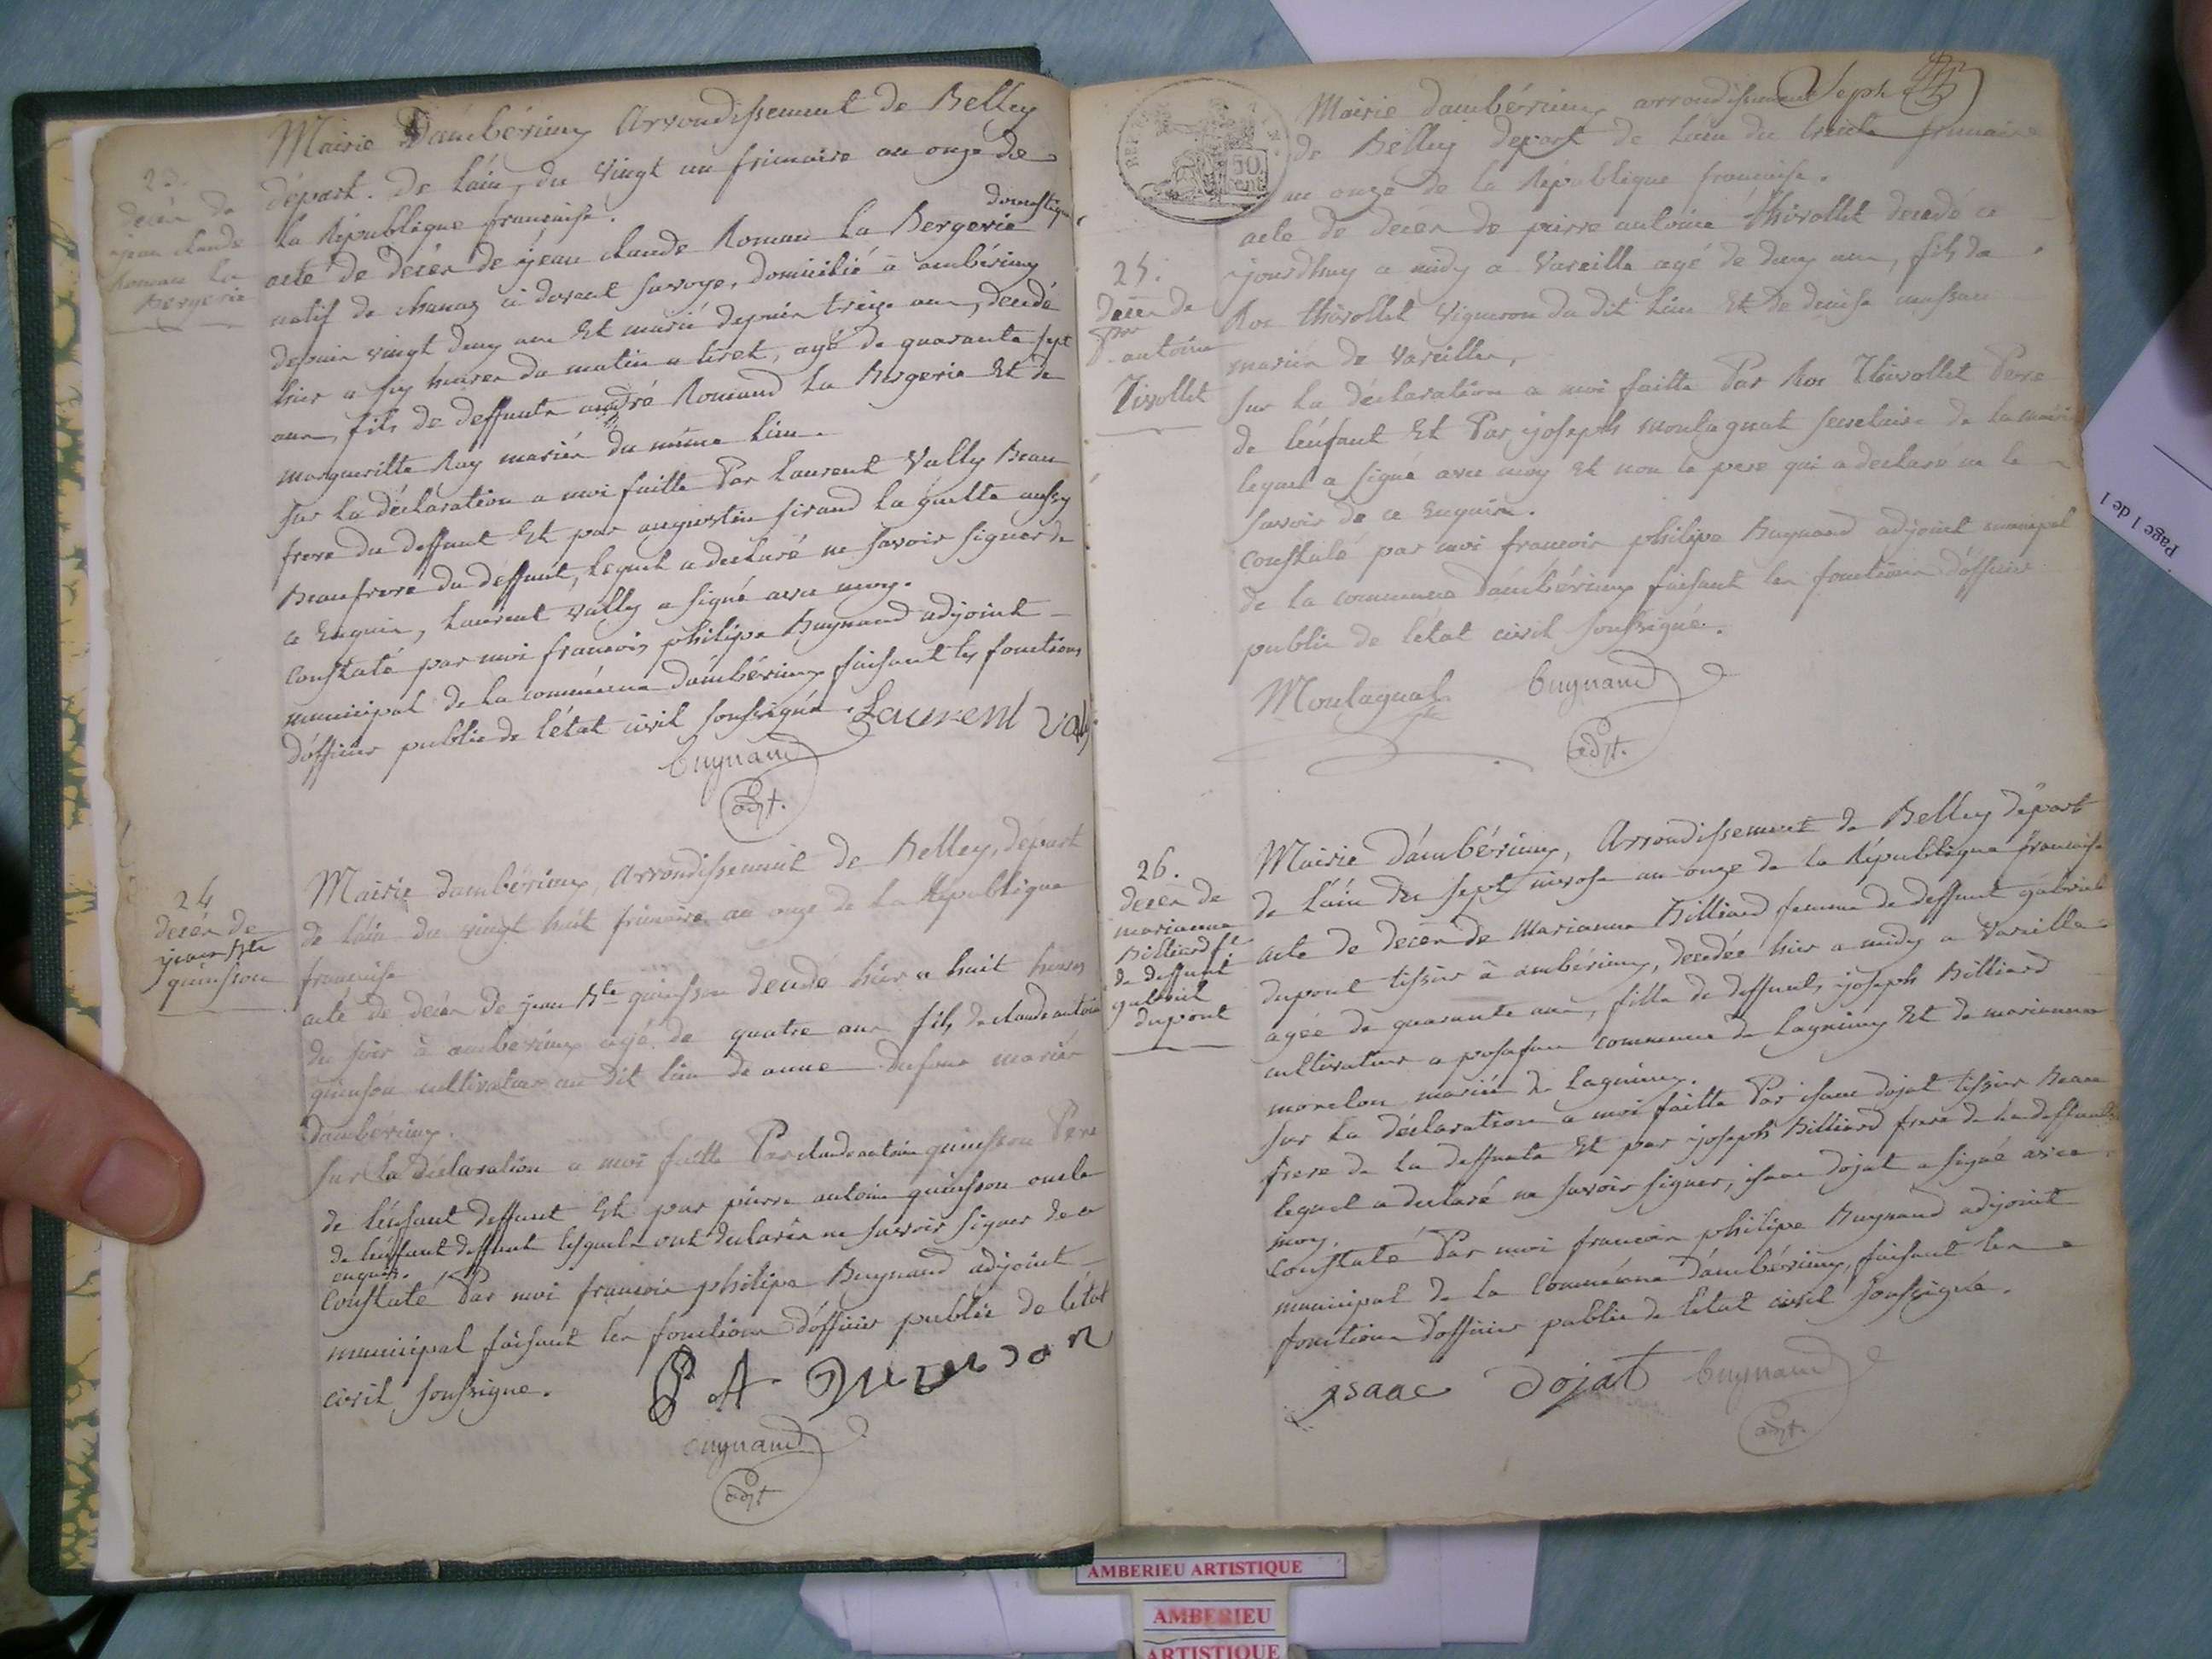 23.
décès de
jean claude
Roman La
Bergerie
Mairie d'ambérieux arrondissement de Belley
départ. de l'ain, du vingt un frimaire an onze de
la République française.
acte de décès de jean claude Roman La Bergerie domestique
natif de chanaz cy devant savoye, domicilié à ambérieux
depuis vingt deux ans Et marié depuis treize ans, décédé
hier a six heures du matin a tiret, agé de quarante sept
ans, fils de deffunts andré Romand La Bergerie Et de
margueritte Ray mariés du même lieu.
sur la déclaration a moi faitte Par Laurent Vally Beau
frere du deffunt Et par augustin sirand la guelta aussy
Beaufrere du deffunt, lequel a declaré ne savoir signer de
ce Enquis, Laurent Vally a signé avec moy.
Constaté par moi francois philipe Buynand adjoint
municipal de la commune d'ambérieux faisant les fonctions
d'officier public de l'état civil soussigné. Laurent Valy
buynand
adjt.
24
décès de
jean Bte
quinson
Mairie dambérieux, arrondissement de Belley, départ
de l'ain du vingt huit frimaire an onze de la République
francaise
acte de décès de jean Bte quinsson décédé hier a huit heures
du soir à ambérieux agé de quatre ans fils de claude antoine
quinson cultivateur au dit lieu de anne Dufour mariés
dambérieux.
sur la déclaration a moi faitte Par claude antoine quinsson Pere
de l'enfant deffunt Et par pierre antoine quinsson oncle
de l'enfant deffunt lesquels ont declarés ne savoir signer de ce
enquis.
Constaté Par moi francois philipe Buynand adjoint
municipal faisant les fonctions d'officier public de l'état
civil soussigné. P A quinson
buynand
adjt
REP
50
cent
Sept
Mairie dambérieux arrondissement
de Belley départ de l'ain du trente frimaire
an onze de la République francaise.
25.
décès de
pre
antoine
Tivollet
acte de décès de pierre antoine thivollet décédé ce
jourdhuy a midy a Vareille agé de deux ans, fils de
Roc thivollet Vigneron du dit lieu Et de denise
mariés de Vareilles,
sur la déclaration a moi faitte Par Roc Thivollet Pere
de l'enfant Et Par joseph montagnat secretaire de la mairie
lequel a signé avec moy Et non le pere qui a declaré ne le
savoir de ce Enquis.
Constaté par moi francois philipe Buynand adjoint municipal
de la commune d'ambérieux faisant les fonctions d'officier
public de l'état civil soussigné.
Montagnat buynand
adjt.
26.
décès de
marianne
Billiard fe
de deffunt
gabriel
dupont
Mairie d'ambérieux, arrondissement de Belley départ
de l'ain du sept nivose an onze de la République francaise
acte de décès de Marianne Billiard femme de deffunt gabriel
dupont tissier à ambérieux, décédée hier a midy a Vareille
agée de quarante ans, fille de deffunts joseph Billiard
cultivateur a posafou commune de Lagnieux Et de marianne
morelon mariés de Lagnieux.
sur la déclaration a moi faitte Par isaac dojat tissier Beau
frere de la deffunte Et par joseph Billiard frere de la deffunte
lequel a declaré ne savoir signer, isaac dojat a signé avec
moy.
Constaté Par moi francois philipe Buynand adjoint
municipal de la commune d'ambérieux, faisant les
fonctions d'officier public de l'état civil soussigné.
isaac dojat buynand
adjt.
Page 1 de 1
AMBERIEU ARTISTIQUE
AMBERIEU
ARTISTIQUE